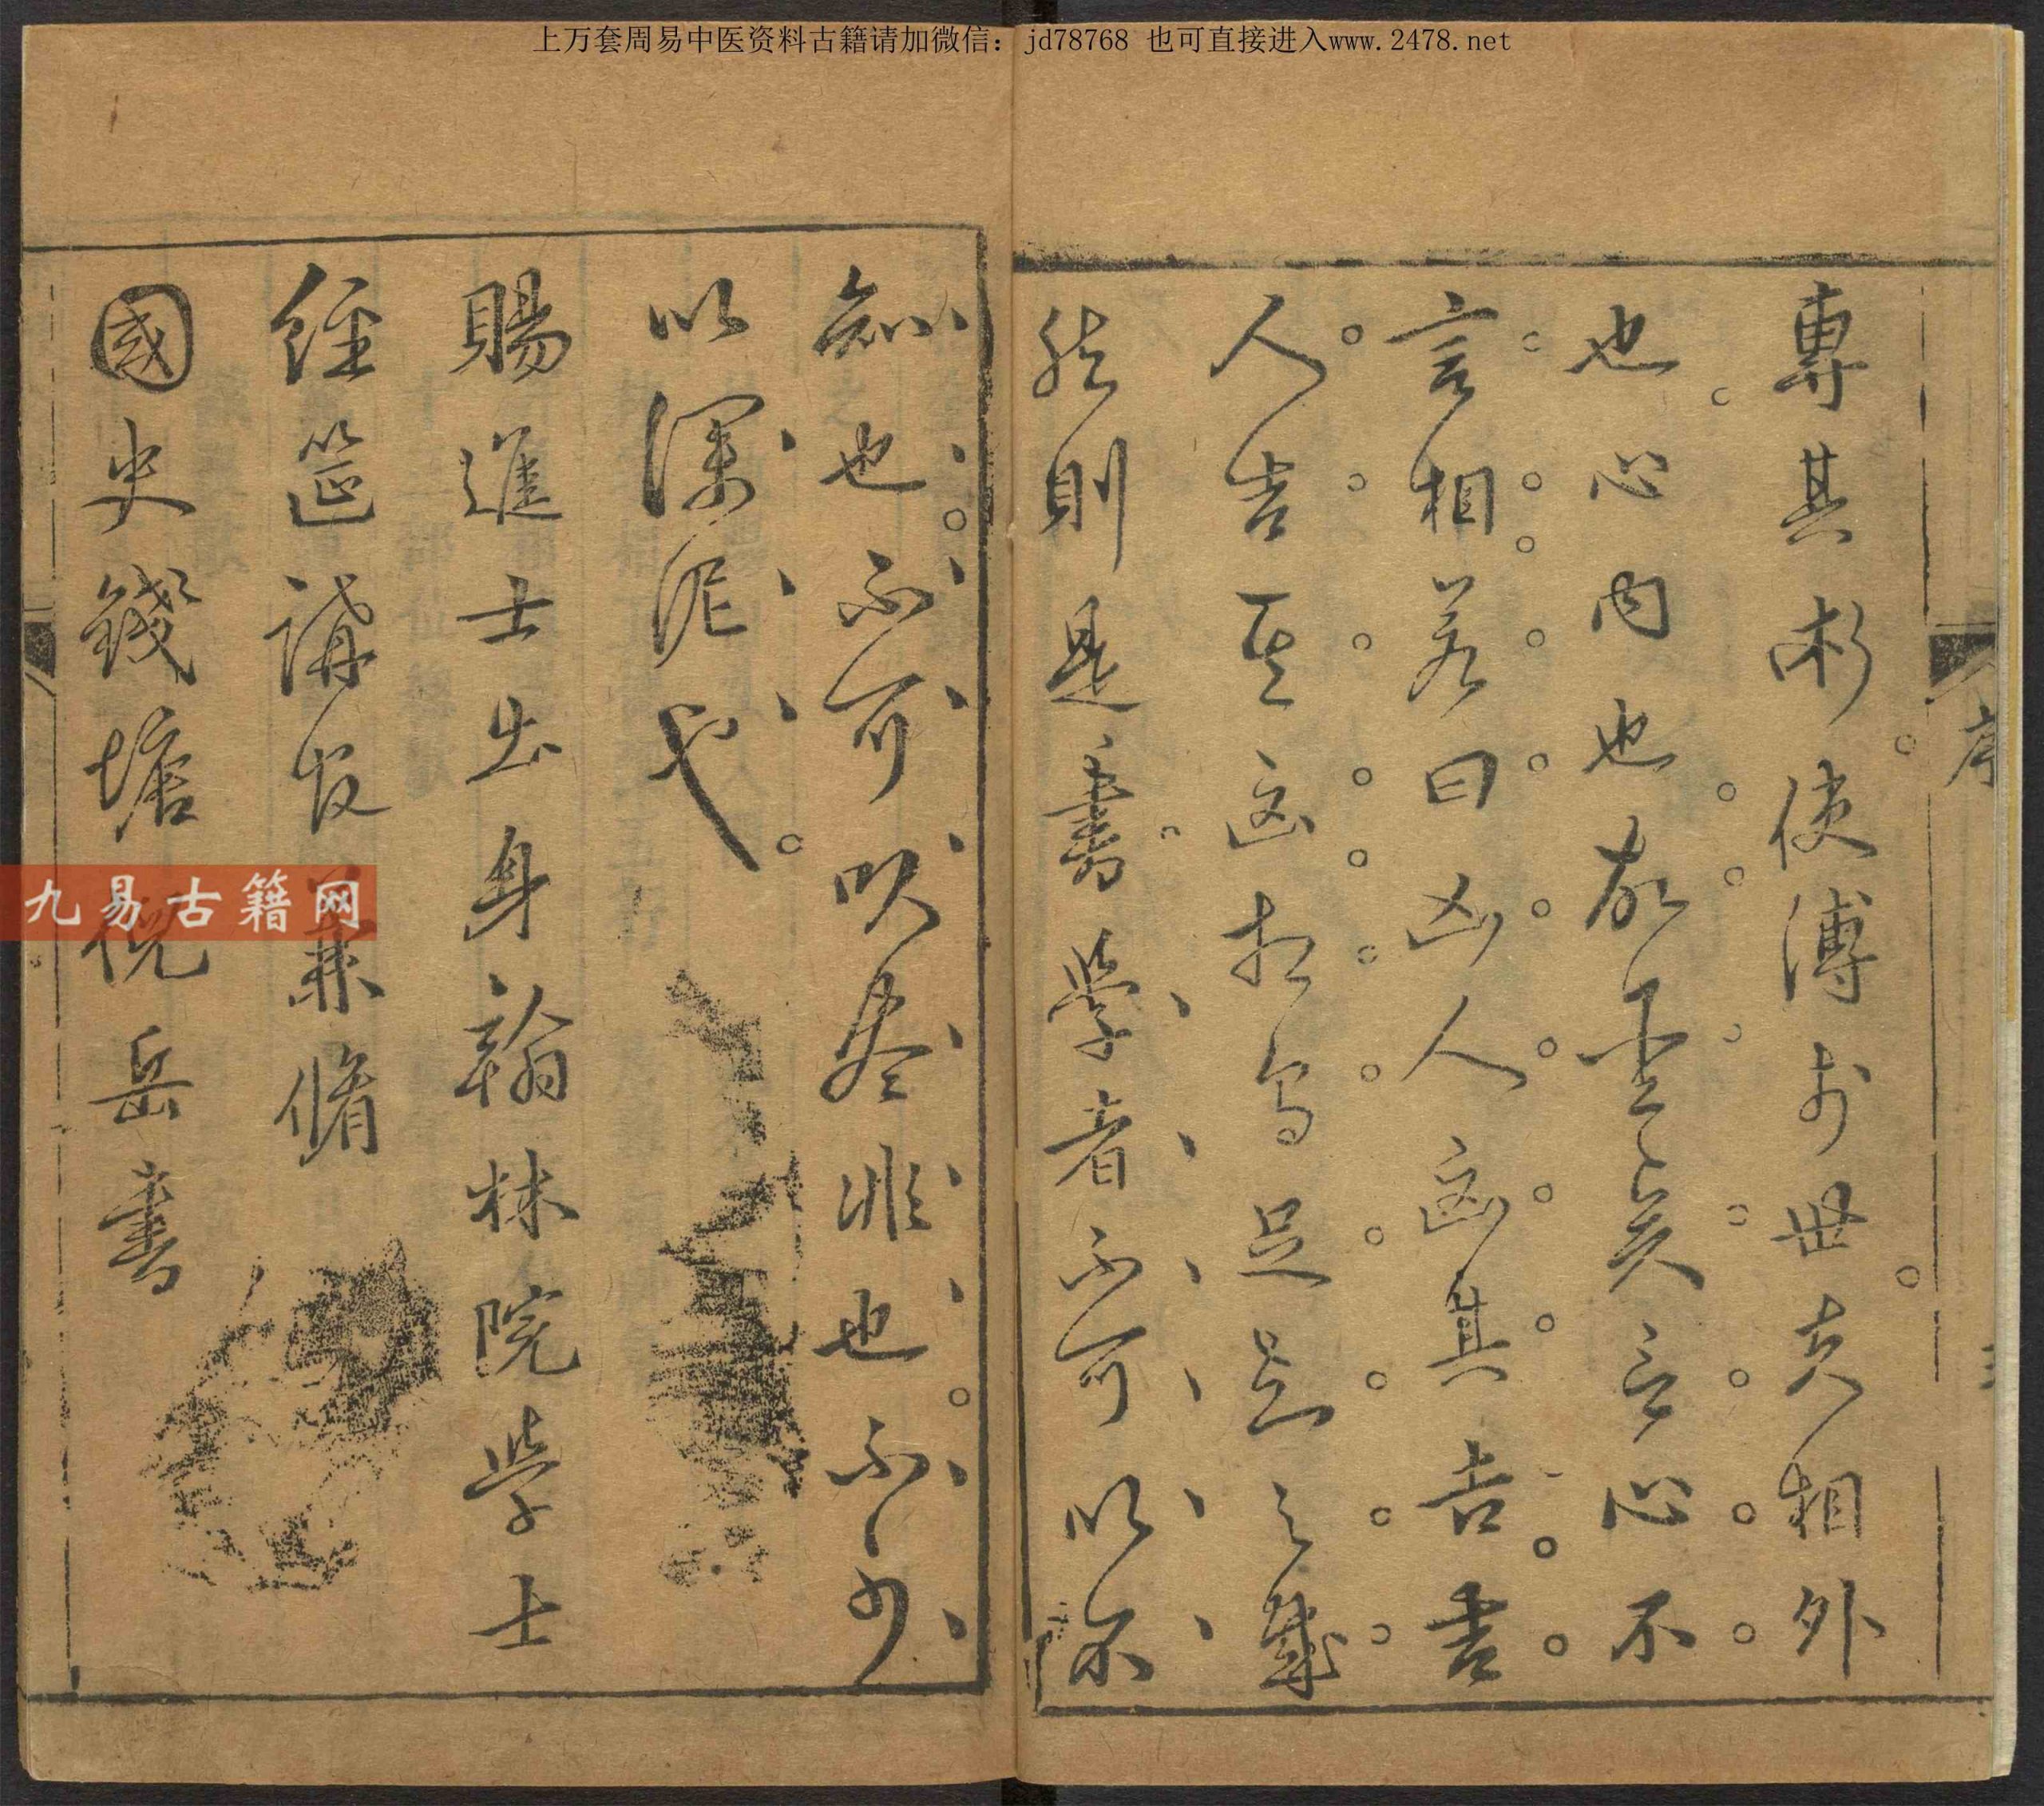 上万套周易中医资料古籍请加微信：jd78768 也可直接进入www.2478.net
序
專其術使傳於世夫相外
也心內也故耳言心不
言相若曰凶人凶其吉吉
人吉其凶相焉足是之哉
然則是書學者不可以不
知也不可以盡非也不可
以深泥也
賜進士出身翰林院學士
經筵講官兼脩
國史錢塘倪岳書
九易古籍网